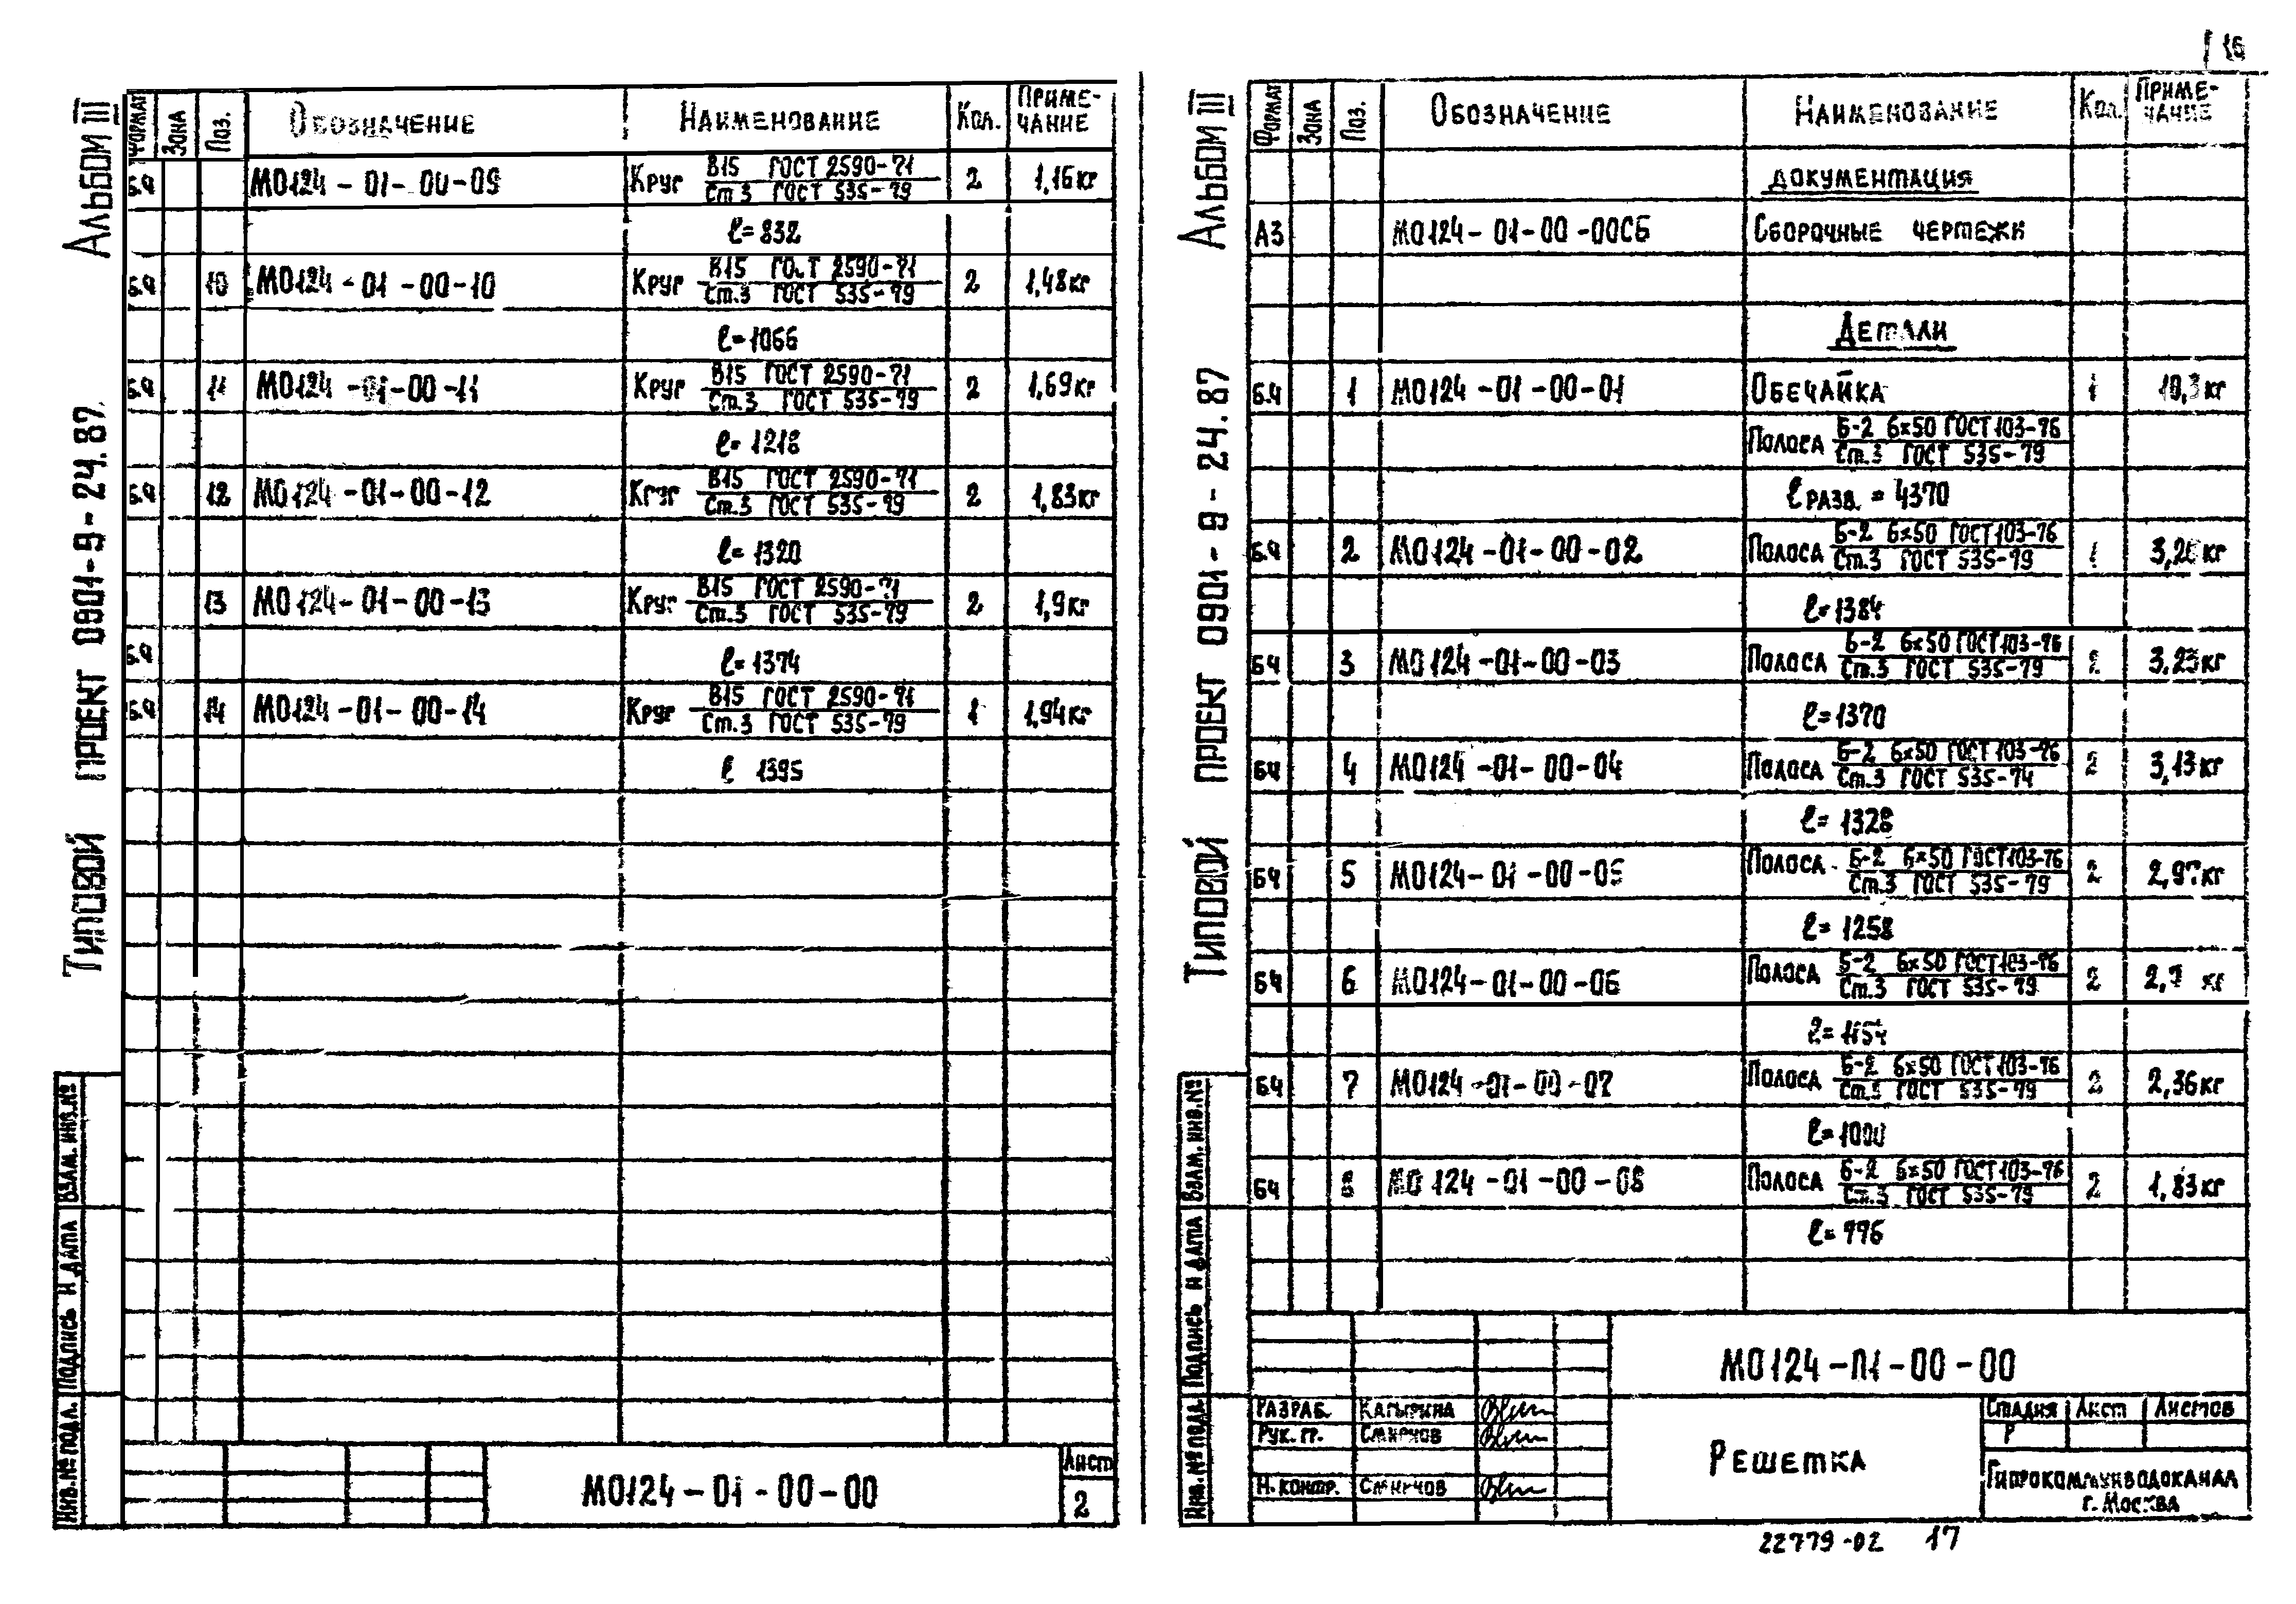 16
Альбом III
Типовой проект 0901-9-24.87
Формат Зона Поз. Обозначение Наименование Кол. Приме-
чание
Б.Ч МО124-01-00-09 Круг В15 ГОСТ 2590-71 2 1,16кг
Ст3 ГОСТ 535-79
ℓ=832
Б.Ч 10 МО124-01-00-10 Круг В15 ГОСТ 2590-71 2 1,48кг
Ст.3 ГОСТ 535-79
ℓ=1066
Б.Ч 11 МО124-01-00-11 Круг В15 ГОСТ 2590-71 2 1,69кг
Ст.3 ГОСТ 535-79
ℓ=1218
Б.Ч 12 МО124-01-00-12 Круг В15 ГОСТ 2590-71 2 1,83кг
Ст.3 ГОСТ 535-79
ℓ=1320
13 МО124-01-00-13 Круг В15 ГОСТ 2590-71 2 1,9кг
Ст.3 ГОСТ 535-79
Б.Ч ℓ=1374
Б.Ч 14 МО124-01-00-14 Круг В15 ГОСТ 2590-71 1 1,94кг
Ст.3 ГОСТ 535-79
ℓ 1395
Инв.№ подл. Подпись и дата Взам.инв.№
МО124-01-00-00
Лист
2
Альбом III
Типовой проект 0901-9-24.87
Формат Зона Поз. Обозначение Наименование Кол. Приме-
чание
Документация
А3 МО124-01-00-00СБ Сборочные чертежи
Детали
Б.Ч 1 МО124-01-00-01 Обечайка 1
Полоса Б-2 6х50 ГОСТ103-76
Ст.3 ГОСТ 535-79
ℓ разв. = 4370
Б.Ч 2 МО124-01-00-02 Полоса Б-2 6х50 ГОСТ103-76 1
Ст.3 ГОСТ 535-79
ℓ=1384
БЧ 3 МО124-01-00-03 Полоса Б-2 6х50 ГОСТ103-76 2 3,23кг
Ст.3 ГОСТ 535-79
ℓ=1370
БЧ 4 МО124-01-00-04 Полоса Б-2 6х50 ГОСТ103-76 2 3,13кг
Ст.3 ГОСТ 535-74
ℓ=1328
БЧ 5 МО124-01-00-05 Полоса Б-2 6х50 ГОСТ103-76 2 2,97кг
Ст.3 ГОСТ 535-79
ℓ=1258
БЧ 6 МО124-01-00-06 Полоса Б-2 6х50 ГОСТ103-76 2 кг
Ст.3 ГОСТ 535-79
ℓ=1154
БЧ 7 МО124-01-00-07 Полоса Б-2 6х50 ГОСТ103-76 2 2,36кг
Ст.3 ГОСТ 535-79
ℓ=1000
БЧ 8 МО124-01-00-08 Полоса Б-2 6х50 ГОСТ103-76 2 1,83кг
Ст.3 ГОСТ 535-79
ℓ=776
Инв.№ подл. Подпись и дата Взам.инв.№
МО124-01-00-00
Разраб.
Рук. гр. Смирнов
Н. контр. Смирнов
Решетка
Стадия Лист Листов
Р
Гипрокоммунводоканал
г. Москва
22779-02 17